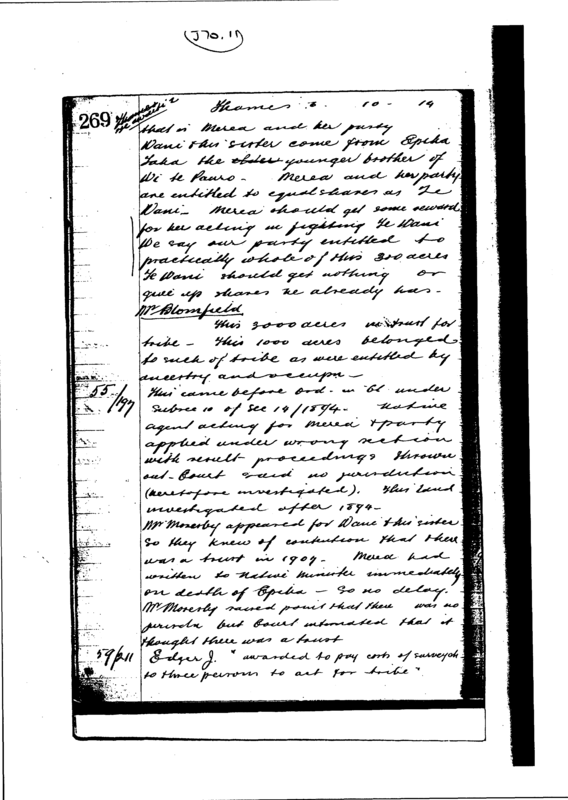 (J70.11)
269
Thames 2. 10 - 14
that is Merea and her party
Wani & his sister come from Epiha
Taha the elder younger brother of
Wi te Pauro - Merea and her party
are entitled to equal shares as Te
Wani - Merea should get some reward
for her acting in fighting Te Wani
We say our party entitled to
practically whole of this 300 acres
Te Wani should get nothing or
give up shares he already has -
Mr Blomfield
This 3000 acres in trust for
tribe - This 1000 acres belonged
to such of tribe as were entitled by
ancestry and occupn -
55/197
This came before Ord. - n Ct under
Subsec 10 of Sec 14/1894 - Native
agent acting for Merea & party
applied under wrong section
with result proceedings thrown
out - Court said no jurisdiction
(heretofore investigated). This land
investigated after 1894 -
Mr Moresby appeared for Wani & his sister
So they knew of contention that there
was a trust in 1907 - Merea had
written to Native Minister immediately
on death of Epiha - so no delay.
Mr Moresby raised point that there was no
jurisdn but Court intimated that it
thought there was a trust
59/211
Edger J. "awarded to pay costs of survey &c
to three persons to act for tribe"